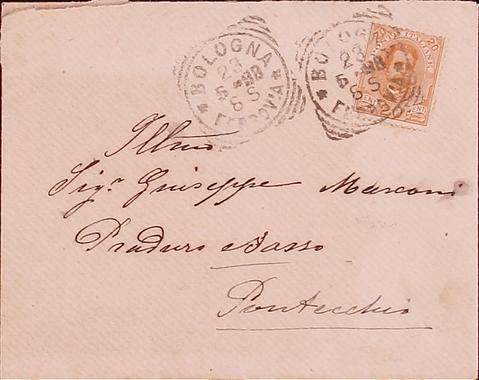 BOLOGNA
23
5-98
8 S
FERROVIA
BOLOGNA
23
5-98
8 S
20 20
Illmo
Sigr Giuseppe Marconi
Praduro e Sasso
Pontecchio